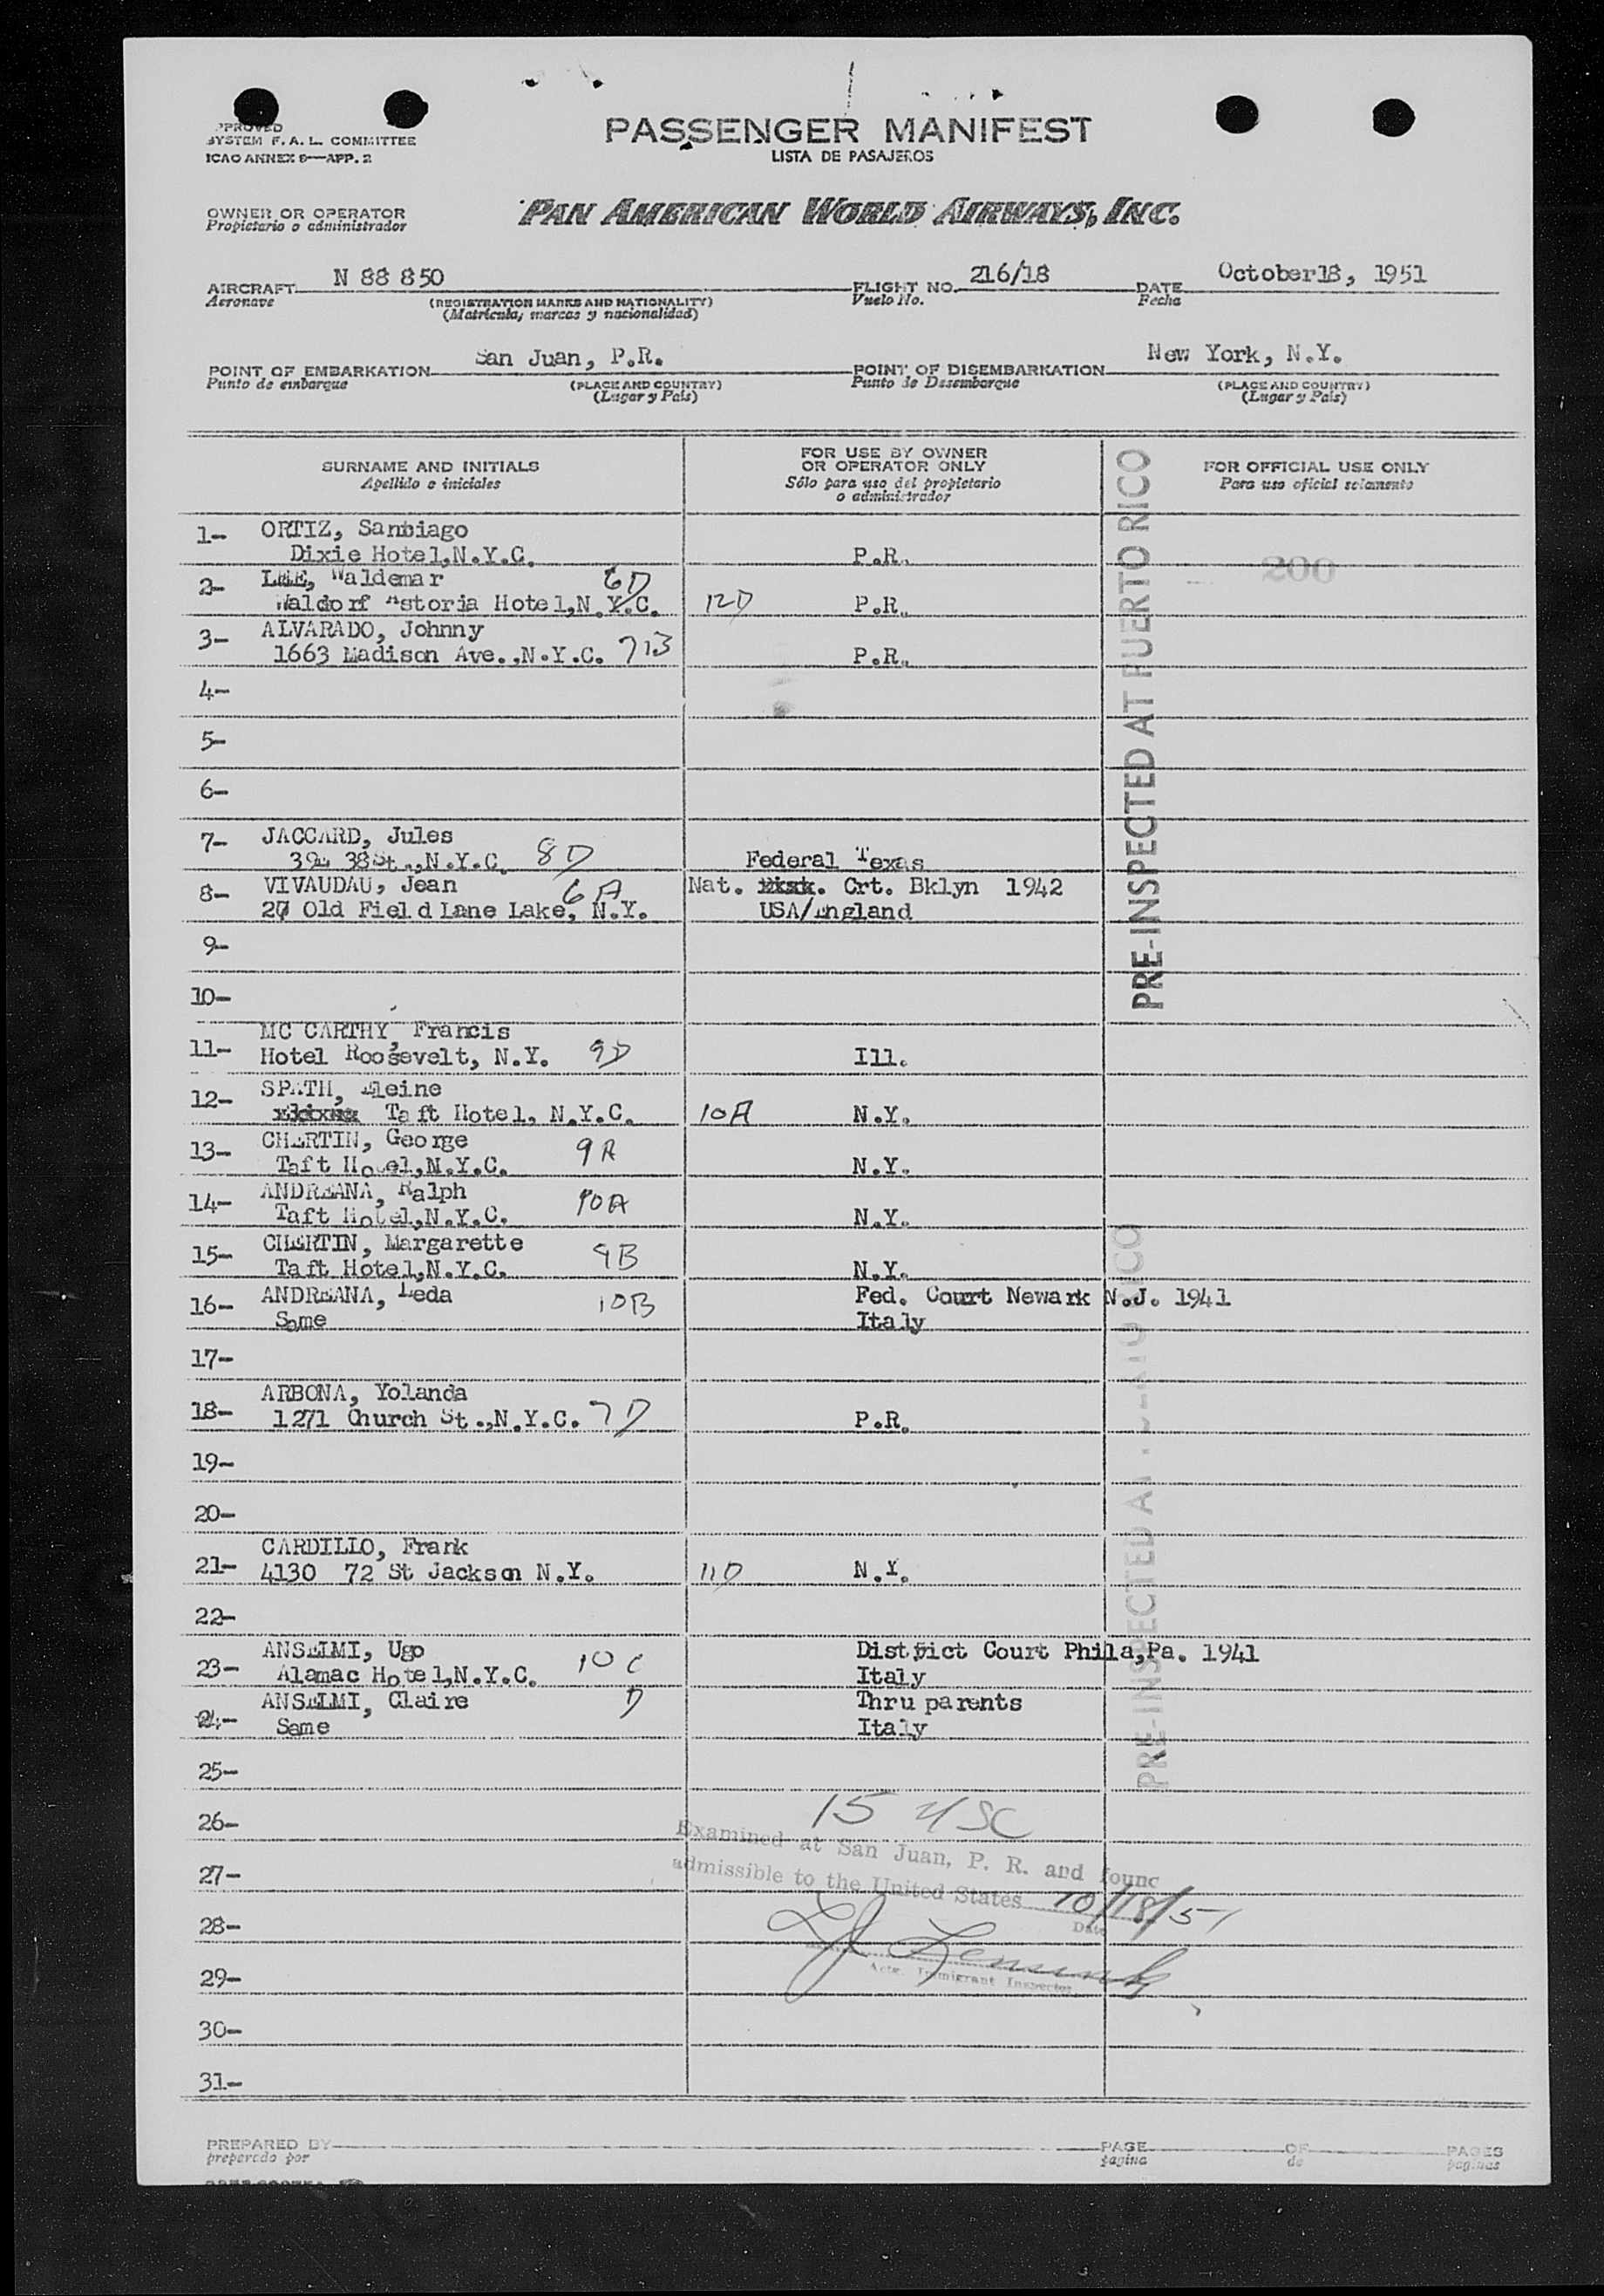 APPROVED
SYSTEM F. A. L. COMMITTEE
ICAO ANNEX 9—APP. 2
PASSENGER MANIFEST
LISTA DE PASAJEROS
OWNER OR OPERATOR
Propietario o administrador
PAN AMERICAN WORLD AIRWAYS, INC.
AIRCRAFT N 88 850
Aeronave
(REGISTRATION MARKS AND NATIONALITY)
(Matrícula, marcas y nacionalidad)
FLIGHT NO. 216/18
Vuelo No.
DATE October18, 1951
Fecha
POINT OF EMBARKATION San Juan, P.R.
Punto de embarque
(PLACE AND COUNTRY)
(Lugar y País)
POINT OF DISEMBARKATION New York, N.Y.
Punto de Desembarque
(PLACE AND COUNTRY)
(Lugar y País)
SURNAME AND INITIALS
Apellido e iniciales
FOR USE BY OWNER
OR OPERATOR ONLY
Sólo para uso del propietario
o administrador
FOR OFFICIAL USE ONLY
Para uso oficial solamente
1- ORTIZ, Santiago
Dixie Hotel,N.Y.C. P.R.
200
2- LEE, Waldemar 6D
Waldorf Astoria Hotel,N.Y.C. 12D P.R.
3- ALVARADO, Johnny
1663 Madison Ave.,N.Y.C. 7B P.R.
4-
5-
6-
7- JACCARD, Jules
38St.,N.Y.C. 8D Federal Texas
8- VIVAUDAU, Jean 6A Nat. Crt. Bklyn 1942
27 Old Field Lane Lake, N.Y. USA/England
9-
10-
11- MC CARTHY, Francis
Hotel Roosevelt, N.Y. 9D Ill.
12- SPATH, Eleine
Taft Hotel, N.Y.C. 10A N.Y.
13- CHERTIN, George
Taft Hotel,N.Y.C. 9A N.Y.
14- ANDREANA, Ralph
Taft Hotel,N.Y.C. 10A N.Y.
15- CHERTIN, Margarette
Taft Hotel,N.Y.C. 9B N.Y.
16- ANDREANA, Leda 10B Fed. Court Newark N.J. 1941
Same Italy
17-
18- ARBONA, Yolanda
1271 Church St.,N.Y.C. 7D P.R.
19-
20-
21- CARDILLO, Frank
4130 72 St Jackson N.Y. 11D N.Y.
22-
23- ANSELMI, Ugo 10C District Court Phila,Pa. 1941
Alamac Hotel,N.Y.C. Italy
24- ANSELMI, Claire D Thru parents
Same Italy
25-
26-
27-
28-
29-
30-
31-
PRE-INSPECTED AT PUERTO RICO
PRE-INSPECTED AT PUERTO RICO
15 USC
Examined at San Juan, P. R. and found
admissible to the United States 10/18/51
Date
Actg. Immigrant Inspector
PREPARED BY
preparado por
PAGE OF PAGES
pagina de paginas